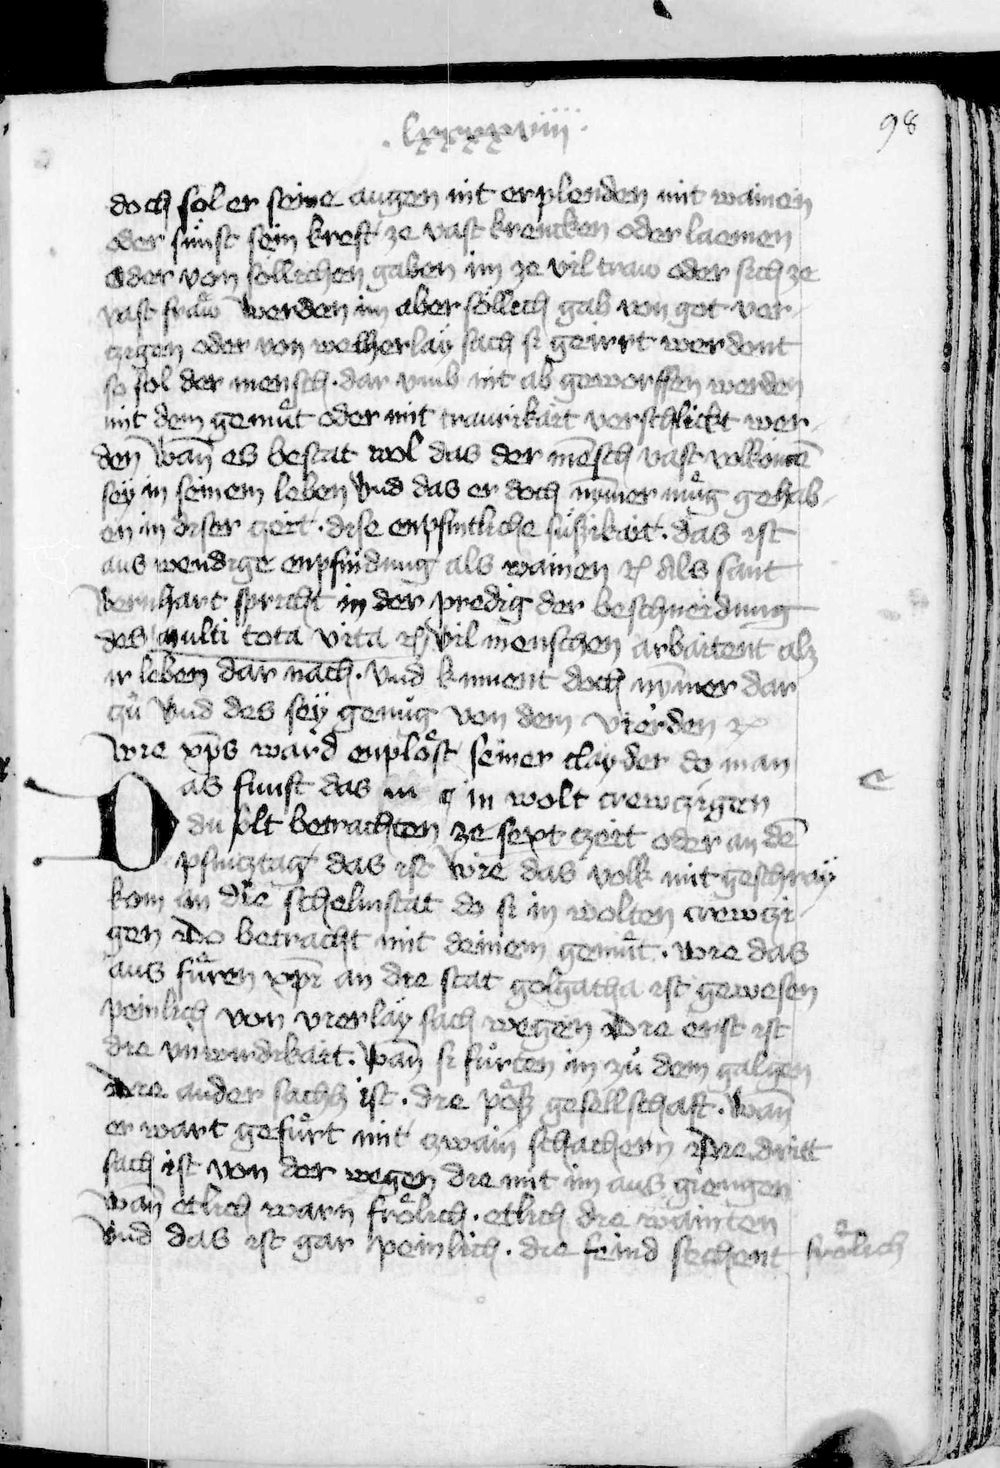 . lxxxxviii .
98
doch sol er seine augen nit erplenden mit wainen
oder sünst sein kreft ze vast krencken oder laemen
Oder von söllichen gaben im ze vil traw oder sich ze
vast fraẅ Werden im aber söllich gab von got ver
czigen oder von welherlay sach si geirrt werdent
so sol der mensch . dar vmb nit ab geworffen werden
mit dem gemuͤt oder mit traurikait verschlickt wer
den Wan̄ es bestat wol das der mēsch vast volkomē
sey in seinem leben Vnd das er doch nym̄er muͤg gehab
en in diser czeit . dise enpfintliche süssikait . das ist
aus wendige enpfindung als wainen ꝛc Als sant
Bernhart spricht in der predig der beschneidung
des multi tota vita ꝛc Vil menschen arbaitent alz
ir leben dar nach . Vnd kument doch nym̄er dar
czuͦ Vnd des sey genuͦg von dem vierden ꝛc
Wie xp̄s ward enploͤst seiner clayder do man
Das funft das in wolt crewczigen
du solt betrachten ze sext czeit oder an dē
pfincztag das ist Wie das volk mit geschray
kom an die schelmstat do si in wolten crewczi
gen Do betracht mit deinem gemuͤt . wie das
aus fuͤren xp̄i an die stat golgatha ist gewesen
peinlich von vierlay sach wegen Die erst ist
die vnwirdikait . Wan̄ si fuͤrten in zuͦ dem galgen
Die ander sach ist . die poͤß gesellschaft . Wan̄
er wart gefuͤrt mit czwain schachern Die dritt
sach ist von der wegen die mit im aus giengen
Wan̄ etlich warn froͤlich . etlich die wainten
Vnd das ist gar peinlich . die feind sechent froͤlich